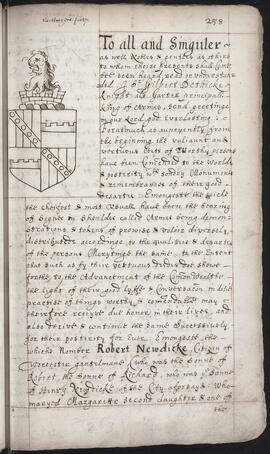 258
To all and Singuler
as well Nobles & gentles as others
to whom these presents shall come
been heard read or understood
Sr Gilbert Dethicke
Knight als Garter principall
King of Armes, send greetinge
in our Lord god Everlastinge.
Forasmuch as auncyently from
the beginning the valiant and
vertuous Acts of worthy persons
have been Comended to the Worlde
& posterity wth sondry Monuments
& remembrances of their good
deserts Emongeste the which
the chiefest & most usuall have been the bearing
of Signes in Shields called Armes being demon-
strations & tokens of prowise & valoir diversely
distributed accordinge to the qualities & deserts
of the persons Merytinge the same. to the Intent
that such as by their vertuous do shew
forthe to the Advauncement of the Comonwealthe
the light of their good lyfe & Conversacon in dailie
practise of things worthy & comendable may
therefore receyve due honor in their lives, and
also derive & continue the same successively
for their posterity for Ever. Emongest the
which Nomber Robert Newdicke, Citizen of
Worcester gentilman, who was the Sonne of
Robert, the Sonne of Richard, who was ye Sonne
of Henry Newdicke of the City aforesayd. Who
maryed Margarette second daughter & one of
the